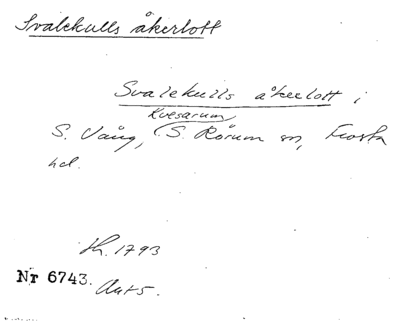 Svalekulls åkerlott
Svalekulls åkerlott i
Kvesarum,
S. Vång, S. Rörum sn, Frosta
hd.
1793
Nr 6743.